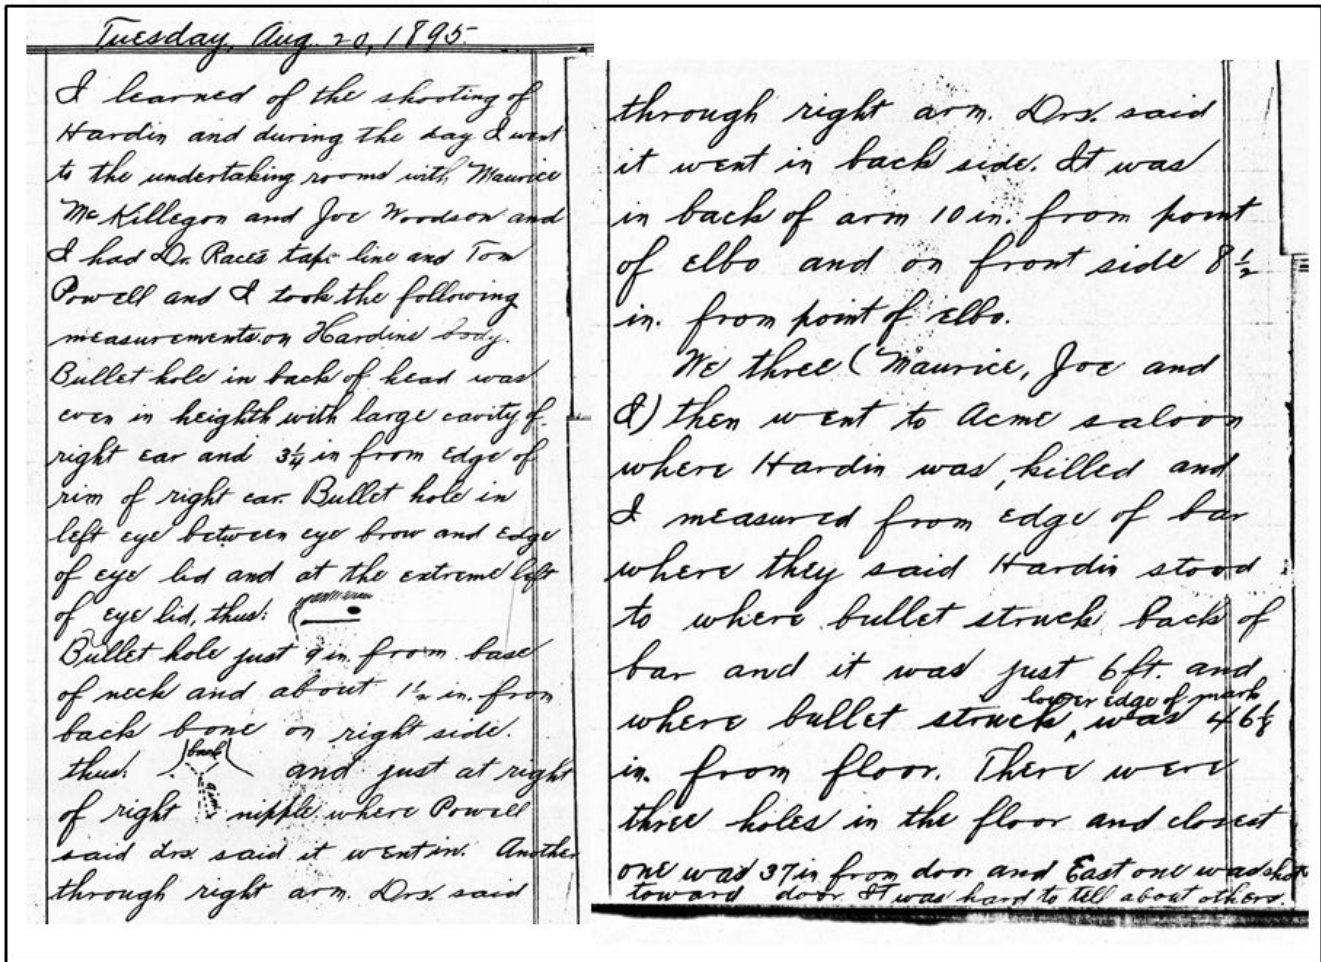 Tuesday, Aug. 20, 1895.
I learned of the shooting of
Hardin and during the day I went
to the undertaking rooms with Maurice
McKillegon and Joe Woodson and
I had Dr. Race's tape line and Tom
Powell and I took the following
measurements on Hardins body.
Bullet hole in back of head was
even in heighth with large cavity of
right ear and 3¼ in from edge of
rim of right ear. Bullet hole in
left eye between eye brow and edge
of eye lid and at the extreme left
of eye lid, thus:
Bullet hole just 9 in. from base
of neck and about 1½ in. from
back bone on right side.
thus: back 9 in. and just at right
of right nipple where Powell
said drs. said it went in. Another
through right arm. Drs. said
through right arm. Drs. said
it went in back side. It was
in back of arm 10 in. from point
of elbo and on front side 8½
in. from point of elbo.
We three (Maurice, Joe and
I) then went to Acme saloon
where Hardin was killed and
I measured from edge of bar
where they said Hardin stood
to where bullet struck back of
bar and it was just 6 ft. and
lower edge of mark
where bullet struck, was 46⅛
in. from floor. There were
three holes in the floor and closest
one was 37 in from door and East one was shot
toward door. It was hard to tell about others.